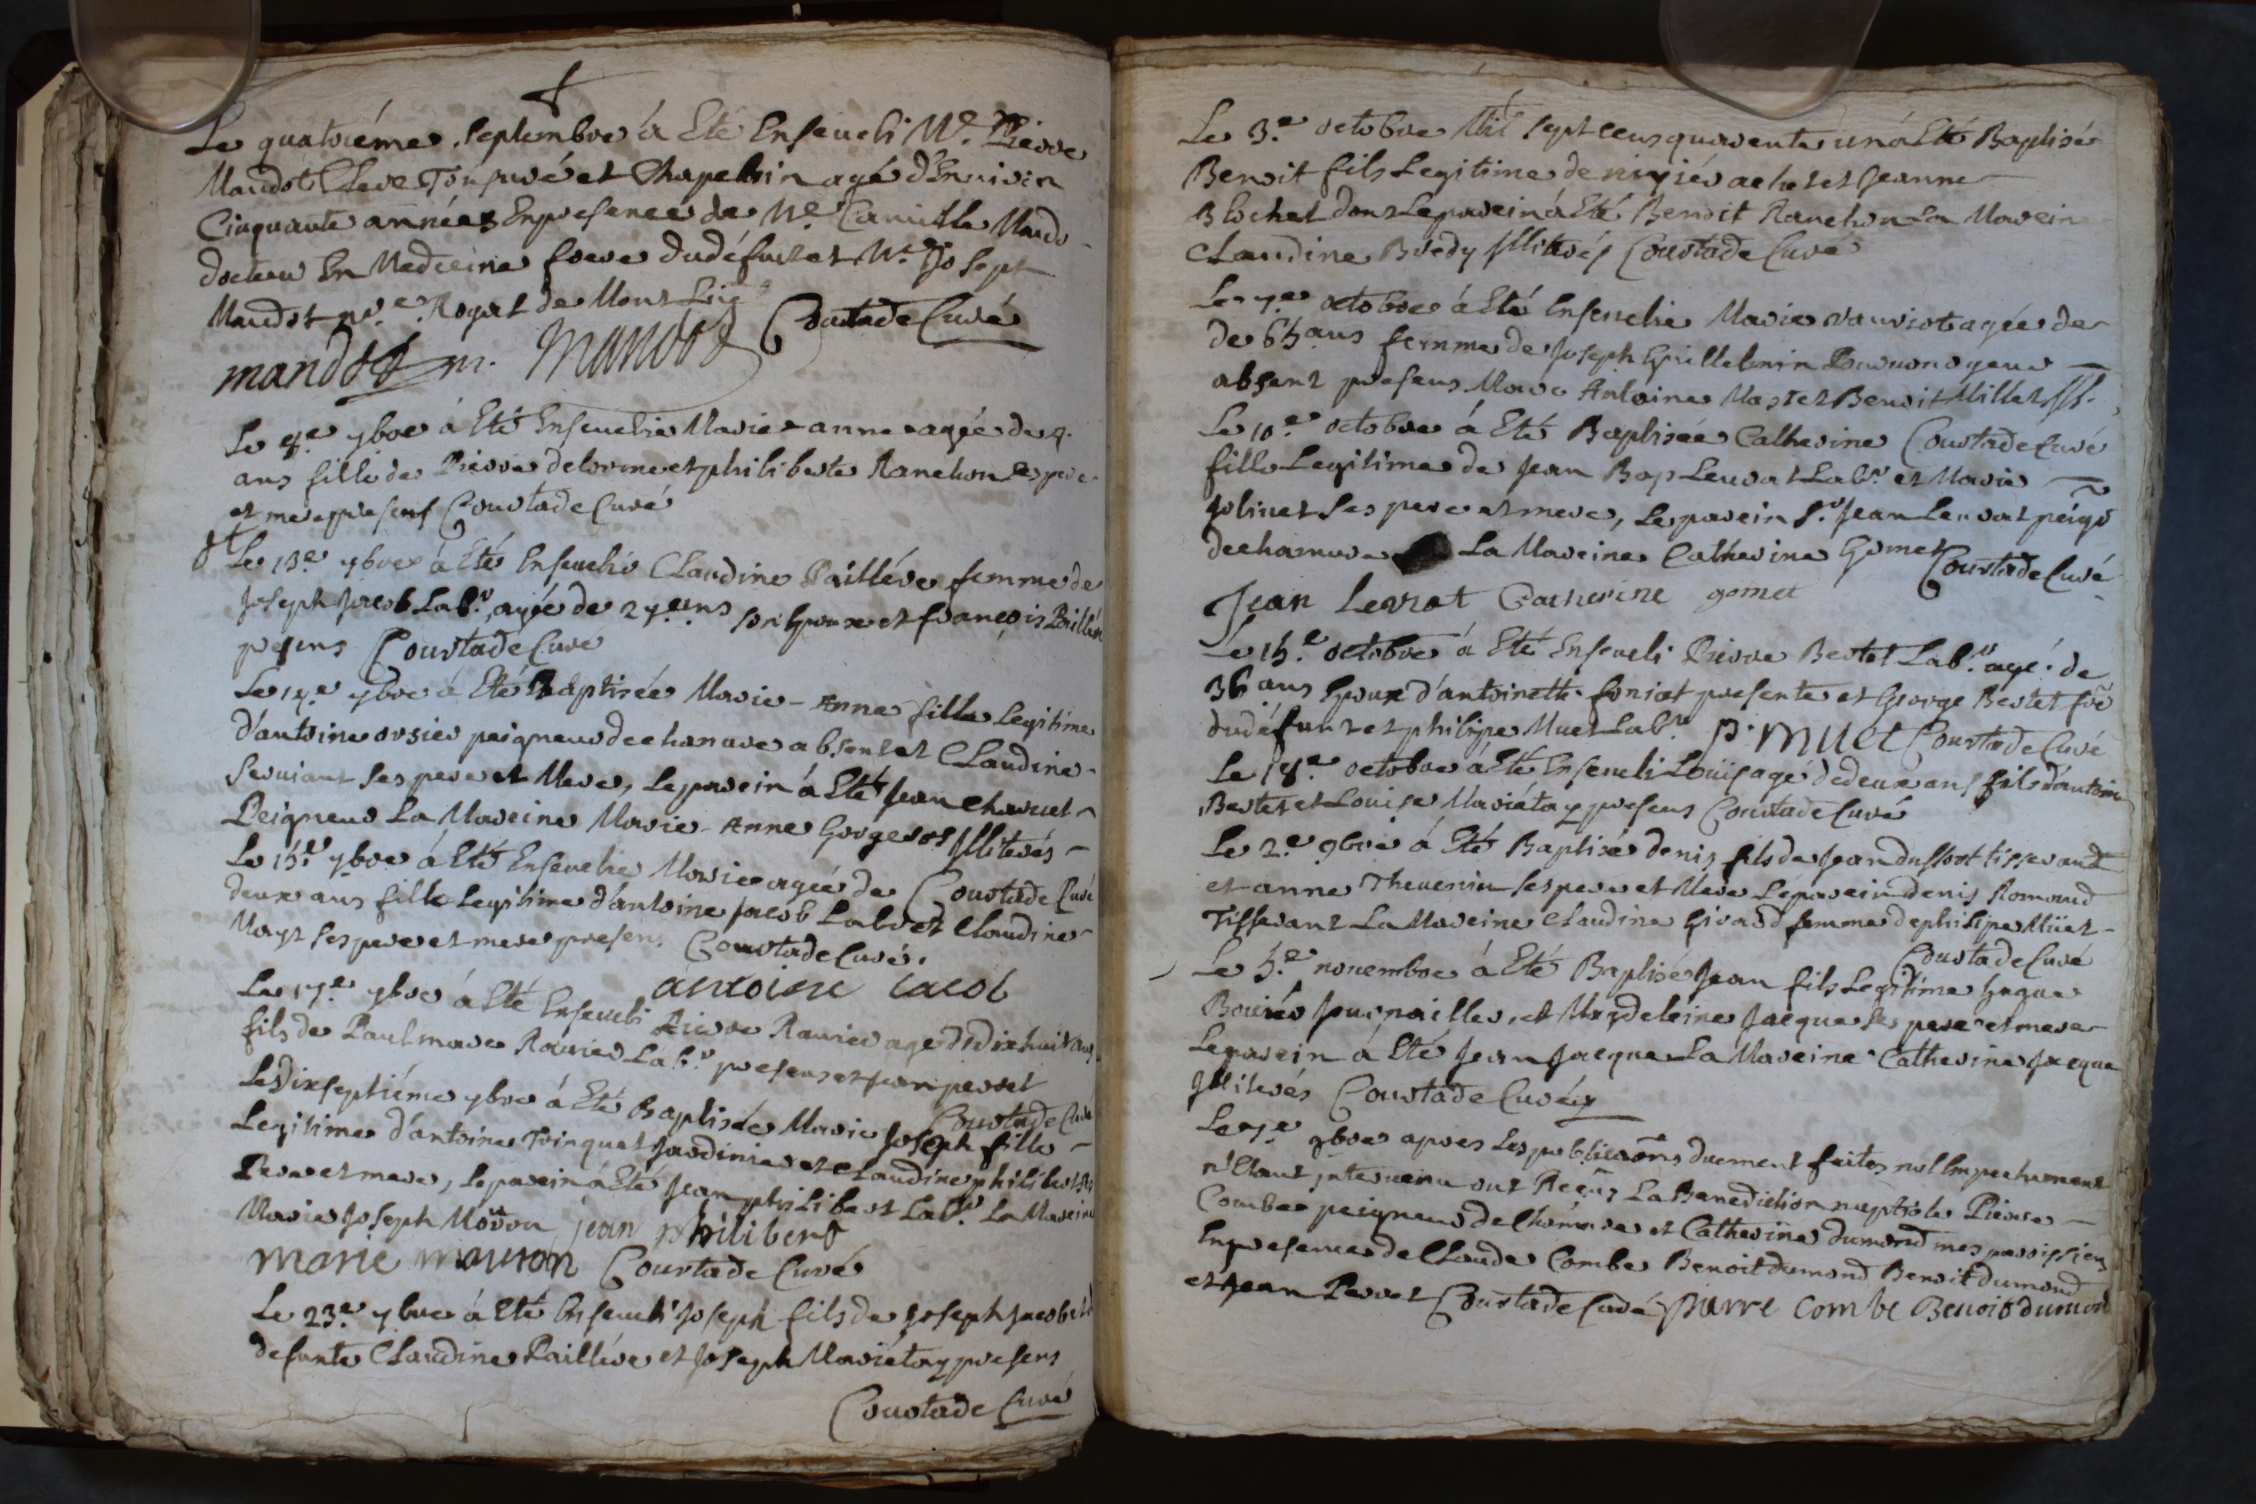 Le quatriéme septembre á Eté Enseueli Me. Pierre
Mandot Clerc Tonsuré et Chapelain agé d'Enuiron
Cinquante années En presence de Me Camille Mando
docteur En Medecine frere du défunt et Me Joseph
Mandot nre. Royal de Mont
mandot m. Mandot Courtade Curé
Le 9.e 7bre á Eté Enseuelie Marie-anne agée de 9.
ans fille de Pierre delorme et philiberte Ranchon ses pere
et mere presens Courtade Curé
Le 13.e 7bre á Eté Enseuelie ClaudineAilléve femme de
Joseph Jacob Lab.r agée de 27 ans son Epoux et francois
presens Courtade Curé
Le 14.e 7bre á Eté Baptisée Marie-Anne fille legitime
d'antoine orsier peigneur de chanure absent et Claudine
Seruiant ses pere et Mere, Le parein á Eté Jean Charuet
Peigneur La Mareine Marie-Anne Georges Illiterés
Le 15.e 7bre á Eté Enseuelie Marie agée de Courtade Curé
deux ans fille legitime d'antoine Jacob Labr et Claudine
Mayt ses pere et mere presens Courtade Curé.
antoine iacob
Le 17.e 7bre á Eté Enseueli Pierre Rauier agé de dix huit ans
fils de Paul marc Rauier Lab.r present et Jean perret
Courtade Curé
Le dixseptiéme 7bre á Eté Baptisée Marie Joseph fille
Legitime d'antoine Trinquet Jardinier et Claudine philibert ses
Pere et mere, le parein á Eté Jean philibert Lab.r La Mareine
Marie Joseph Mouron jean philibert
marie mouron Courtade Curé
Le 23.e 7bre á Eté Enseueli Joseph fils de Joseph Jacob et de
defunte Claudine Pailléve et Joseph Mariétay presens
Courtade Curé
Le 3.e octobre Mil sept cens quarente un á Eté Baptisé
Benoit fils Legitime de achet et Jeanne
Blochet dont Le parein á Eté Benoit Ranchon La Marein
Claudine Bredy Illiterés Courtade Curé
Le 7.e octobre á Eté Enseuelie Marie vauriot agée de
de 65 ans femme de Joseph Guillelmin
absent presens Marc Antoine Mastet Benoit Millet Ill.
Le 10.e octobre á Eté Baptisée Catherine Courtade Curé
fille Legitime de Jean Bap Leurat Lab.r et Marie
Joliuet ses pere et mere, Le parein S.r Jean Leurat peigr
de chanure La Mareine Catherine Gomet Courtade Curé
Jean Levrat Catherine gomet
Le 15.e octobre á Eté Enseueli Pierre Bertet Lab.r agé de
36 ans Epoux d'antoinette foniat presente et George Bertet fre
du défunt et philipe Muet Lab.r p. muet Courtade Curé
Le 18.e octobre á Eté Enseueli Loüis agé de deux ans fils d'antoine
Bertet et Louise Mariétay presens Courtade Curé
Le 2.e 9bre á Eté Baptisé denis fils de Jean dussort tisserand
et anne Theuenin ses pere et Mere Le parein denis Romand
Tisserant La Mareine Claudine Girard femme de philipe Müet
Courtade Curé
Le 5.e nouembre á Eté Baptisé Jean fils Legitime hugue
Bouiés Journailler, et Magdeleine Jacque ses pere et mere
Le parein á Eté Jean Jacque La Mareine Catherine Jacque
Illiterés Courtade Curé
Le 7.e 9bre apres Les publications duement faites nul Empechement
n'Etant interuenu ont Receus La Benediction nuptiale Pierre
Combe peigneur de Chanure et Catherine dumond mes paroissiens
En presence de Claude Combe Benoit dumond Benoit dumond
et Jean Perret Courtade Curé pierre Combe Benoit dumond